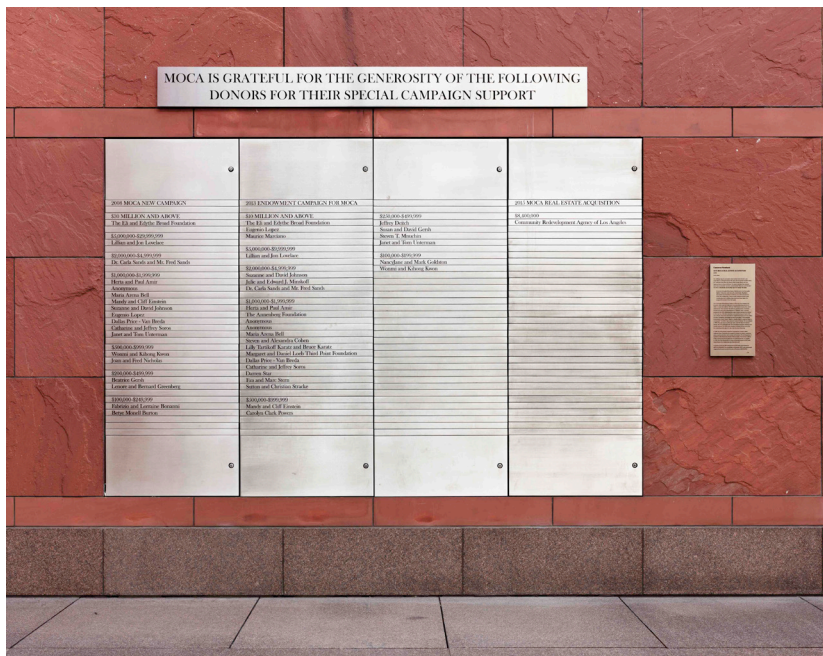 MOCA IS GRATEFUL FOR THE GENEROSITY OF THE FOLLOWING
DONORS FOR THEIR SPECIAL CAMPAIGN SUPPORT
2008 MOCA NEW CAMPAIGN
$30 MILLION AND ABOVE
The Eli and Edythe Broad Foundation
$5,000,000-$29,999,999
Lillian and Jon Lovelace
$2,000,000-$4,999,999
Dr. Carla Sands and Mr. Fred Sands
$1,000,000-$1,999,999
Herta and Paul Amir
Anonymous
Maria Arena Bell
Mandy and Cliff Einstein
Suzanne and David Johnson
Eugenio Lopez
Dallas Price - Van Breda
Catharine and Jeffrey Soros
Janet and Tom Unterman
$500,000-$999,999
Wonmi and Kihong Kwon
Joan and Fred Nicholas
$250,000-$499,999
Beatrice Gersh
Lenore and Bernard Greenberg
$100,000-$249,999
Fabrizio and Lorraine Bonanni
Bettye Monell Burton
2013 ENDOWMENT CAMPAIGN FOR MOCA
$10 MILLION AND ABOVE
The Eli and Edythe Broad Foundation
Eugenio Lopez
Maurice Marciano
$5,000,000-$9,999,999
Lillian and Jon Lovelace
$2,000,000-$4,999,999
Suzanne and David Johnson
Julie and Edward J. Minskoff
Dr. Carla Sands and Mr. Fred Sands
$1,000,000-$1,999,999
Herta and Paul Amir
The Annenberg Foundation
Anonymous
Anonymous
Maria Arena Bell
Steven and Alexandra Cohen
Lilly Tartikoff Karatz and Bruce Karatz
Margaret and Daniel Loeb Third Point Foundation
Dallas Price - Van Breda
Catharine and Jeffrey Soros
Darren Star
Eva and Marc Stern
Sutton and Christian Stracke
$500,000-$999,999
Mandy and Cliff Einstein
Carolyn Clark Powers
$250,000-$499,999
Jeffrey Deitch
Susan and David Gersh
Steven T. Mnuchin
Janet and Tom Unterman
$100,000-$199,999
Nancy Jane and Mark Goldston
Wonmi and Kihong Kwon
2015 MOCA REAL ESTATE ACQUISITION
$8,400,000
Community Redevelopment Agency of Los Angeles